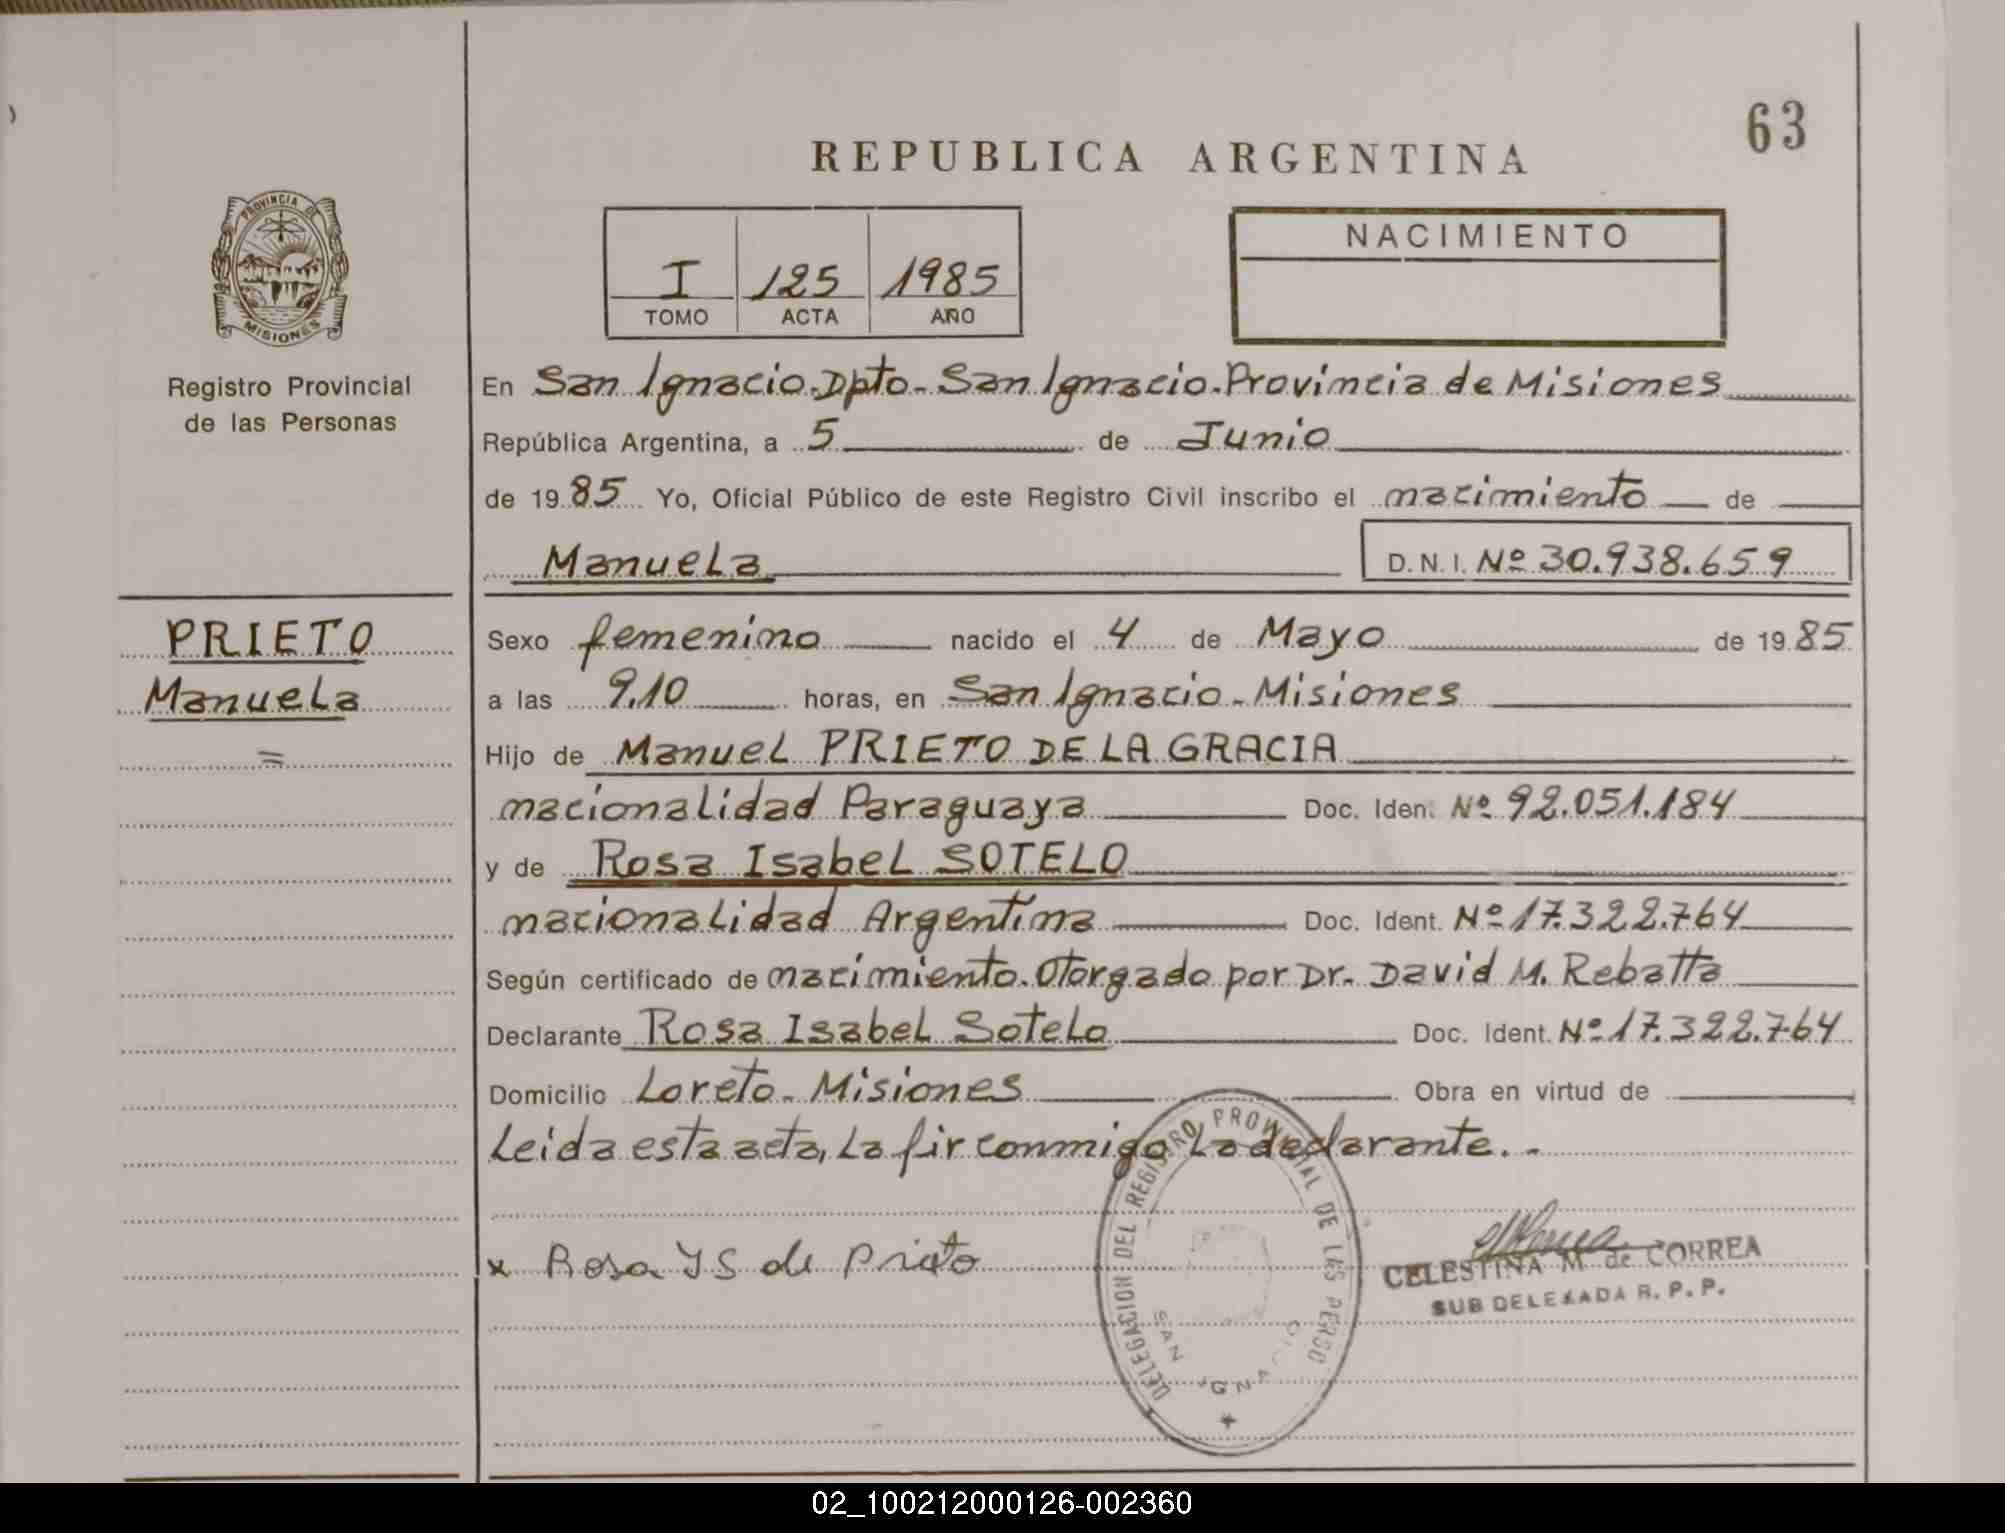 63
REPUBLICA ARGENTINA
PROVINCIA DE
MISIONES
Registro Provincial
de las Personas
I 125 1985
TOMO ACTA AÑO
NACIMIENTO
En San Ignacio. Dpto. San Ignacio. Provincia de Misiones
República Argentina, a 5 de Junio
de 1985 Yo, Oficial Público de este Registro Civil inscribo el nacimiento de
Manuela D.N.I. Nº 30.938.659
PRIETO
Manuela
=
Sexo femenino nacido el 4 de Mayo de 1985
a las 9,10 horas, en San Ignacio - Misiones
Hijo de Manuel PRIETO DE LA GRACIA
nacionalidad Paraguaya Doc. Iden. Nº 92.051.184
y de Rosa Isabel SOTELO
nacionalidad Argentina Doc. Ident. Nº 17.322.764
Según certificado de nacimiento. Otorgado por Dr. David M. Rebatta
Declarante Rosa Isabel Sotelo Doc. Ident. Nº 17.322.764
Domicilio Loreto - Misiones Obra en virtud de
Leida esta acta, la fir conmigo la declarante. -
x Rosa YS de Prieto
DELEGACION DEL REGISTRO PROVINCIAL DE LAS PERSO
SAN IGNACIO
CELESTINA M de CORREA
SUB DELEGADA R. P. P.
02_100212000126-002360